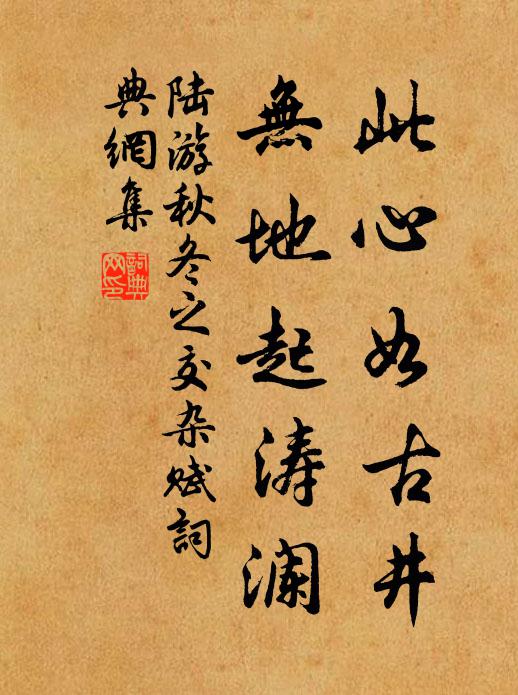 此心如古井
無地起涛澜
陆游秋冬之交杂赋詞
典網集
詞典網印